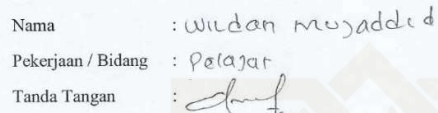 Nama : Wildan Mujaddid
Pekerjaan / Bidang : Pelajar
Tanda Tangan :